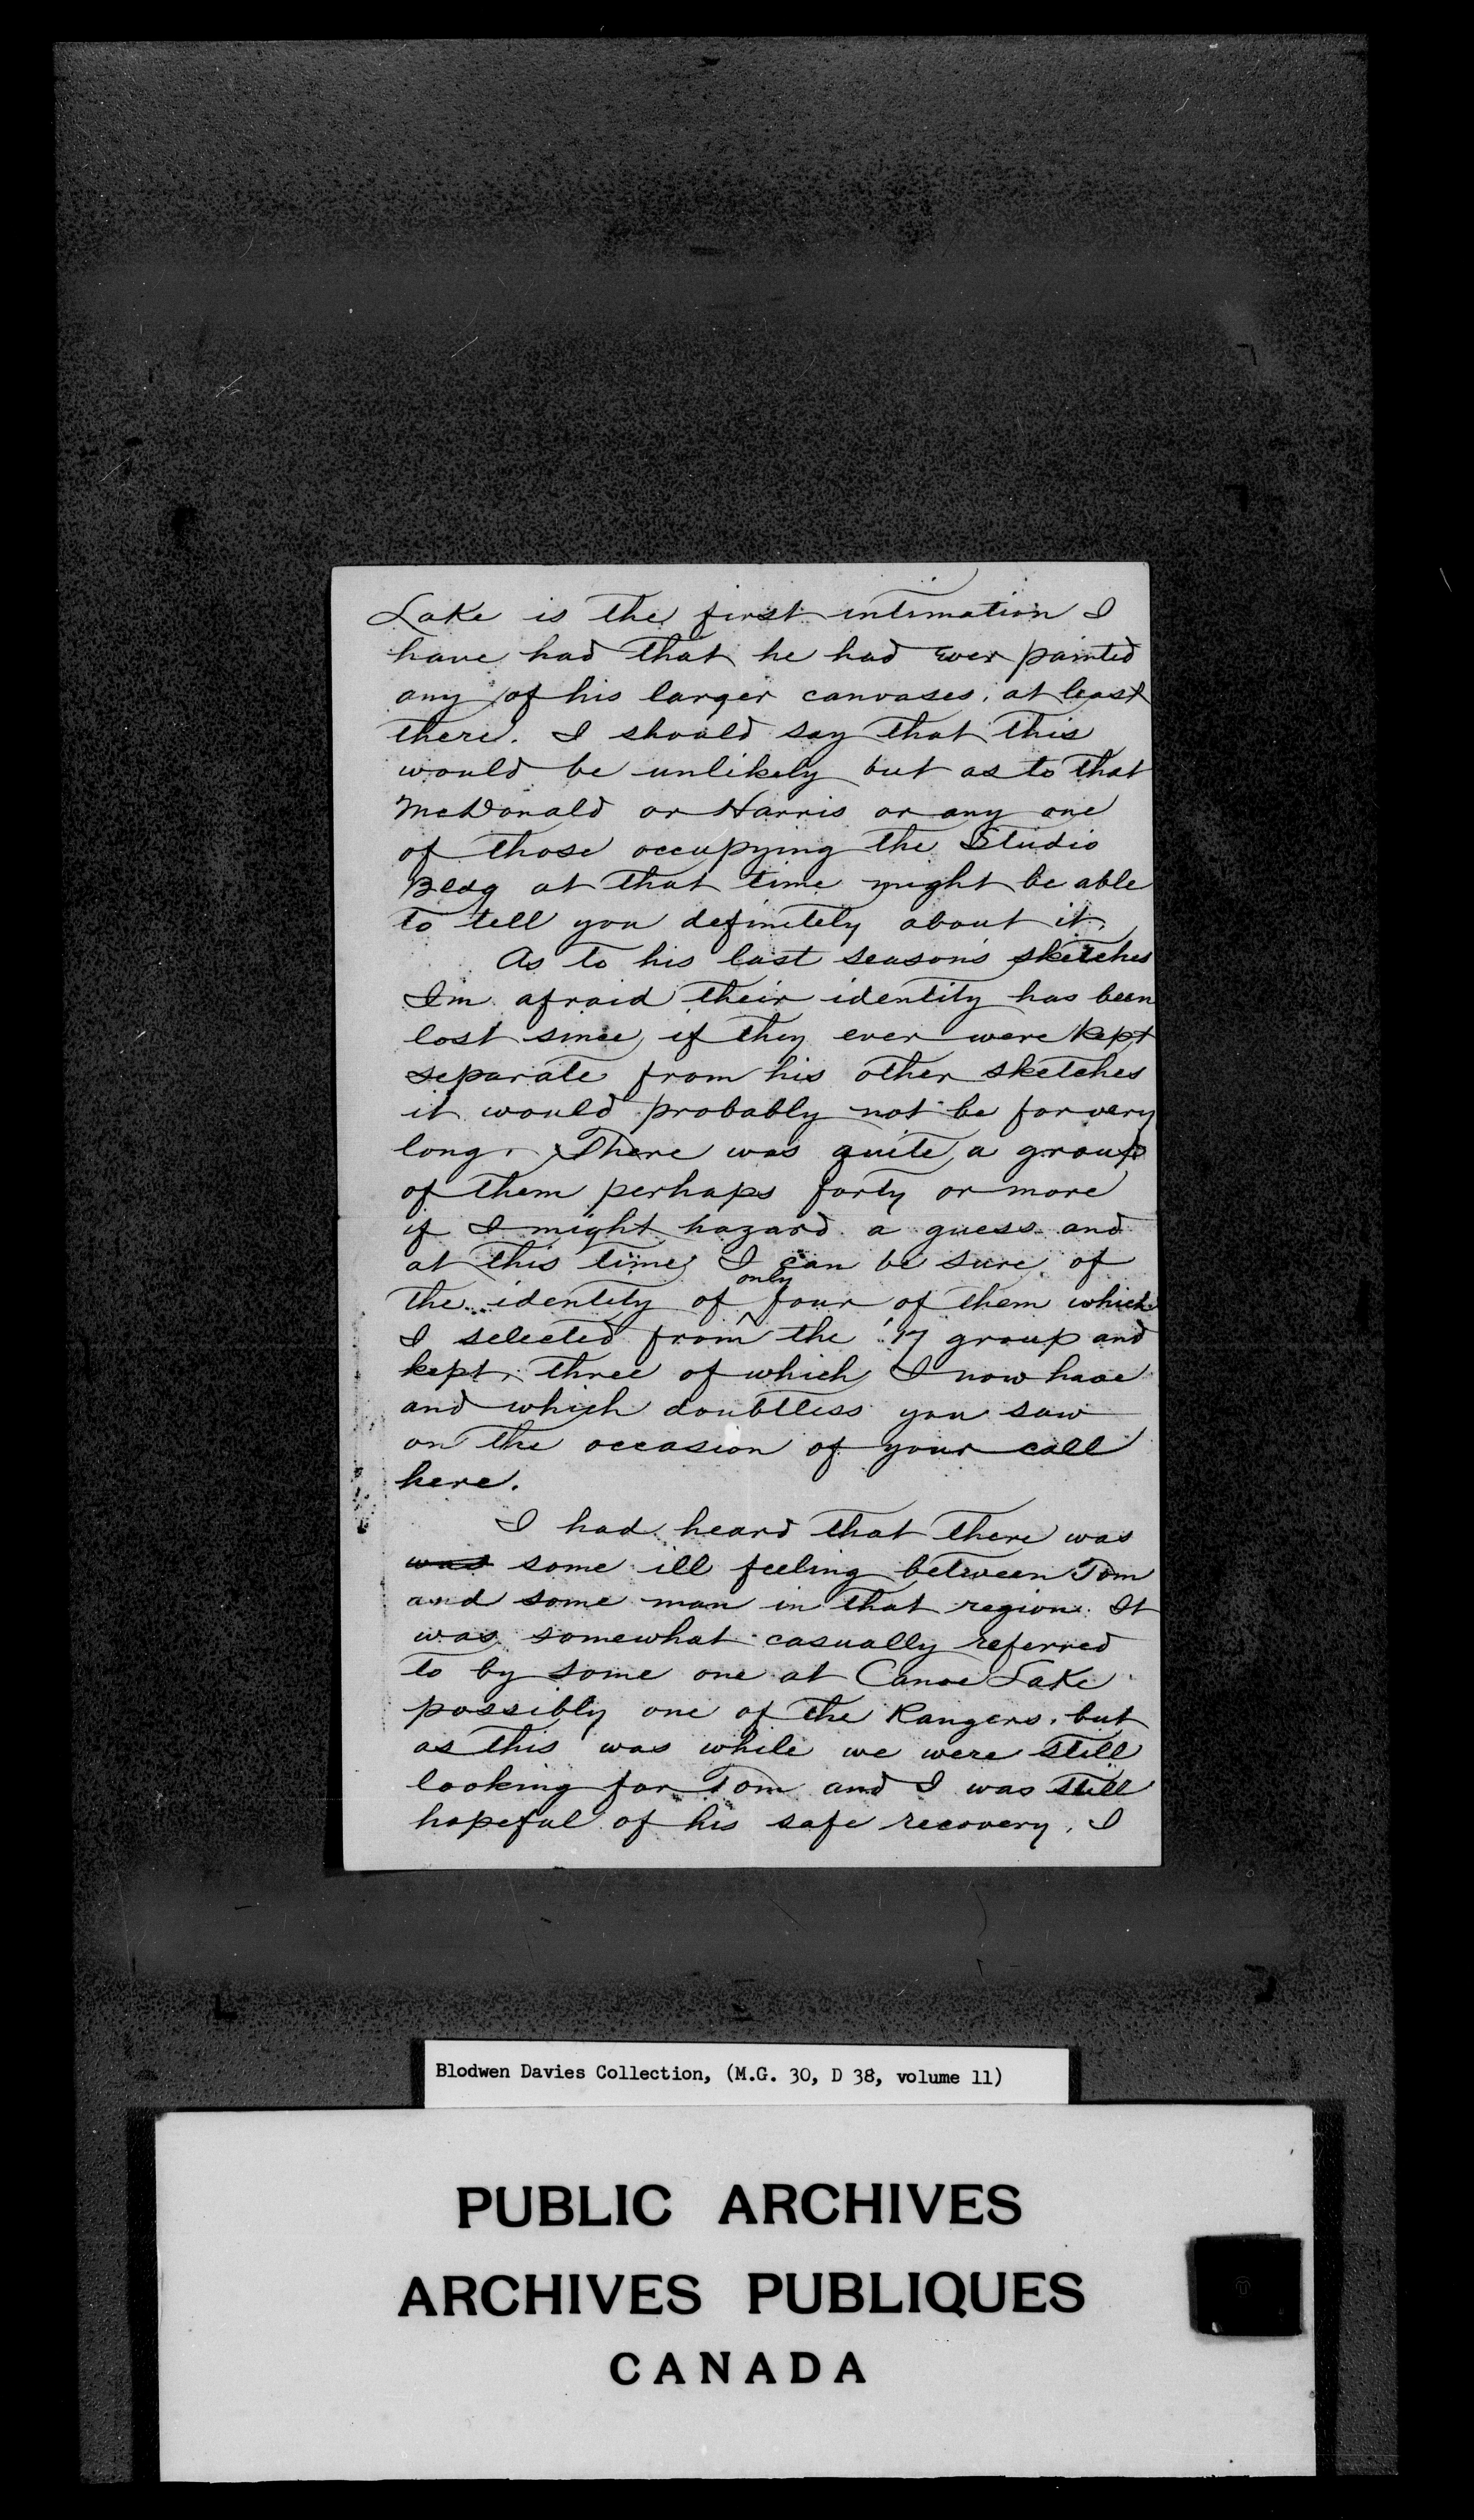 Lake is the first intimation I
have had that he had ever painted
any of his larger canvases, at least
there. I should say that this
would be unlikely but as to that
McDonald or Harris or any one
of those occupying the Studio
Bldg at that time might be able
to tell you definitely about it.
As to his last season's sketches
I'm afraid their identity has been
lost since, if they ever were kept
separate from his other sketches
it would probably not be for very
long. There was quite a group
of them perhaps forty or more
if I might hazard a guess and
at this time I can be sure of
the identity of only four of them which
I selected from the '17 group and
kept, three of which I now have
and which doubtless you saw
on the occasion of your call
here.
I had heard that there was
was some ill feeling between Tom
and some man in that region. It
was somewhat casually referred
to by some one at Canoe Lake
possibly one of the Rangers, but
as this was while we were still
looking for Tom and I was still
hopeful of his safe recovery, I
Blodwen Davies Collection, (M.G. 30, D 38, volume 11)
PUBLIC ARCHIVES
ARCHIVES PUBLIQUES
CANADA